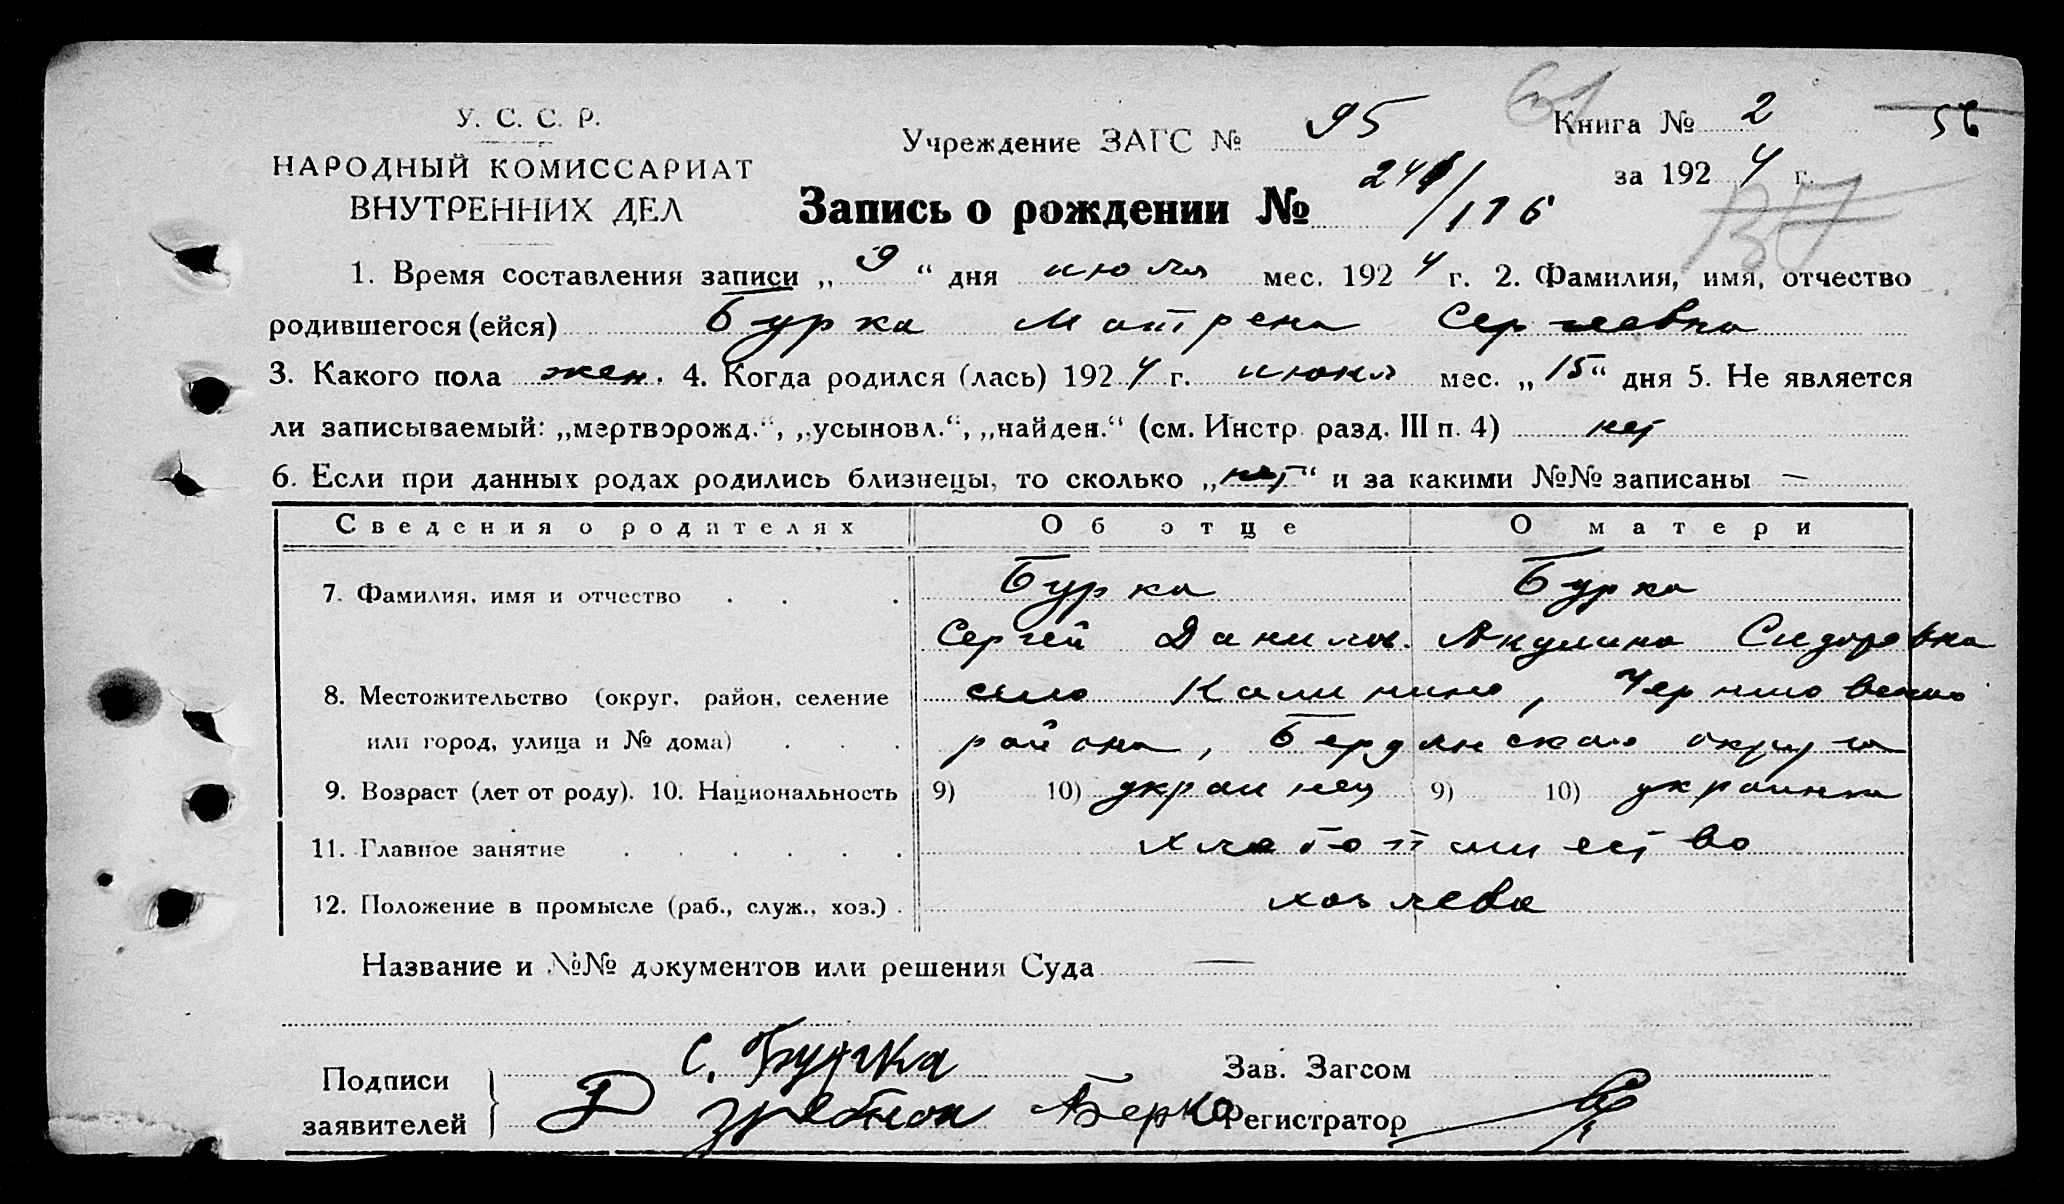 У. С. С. Р.
НАРОДНЫЙ КОМИССАРИАТ
ВНУТРЕННИХ ДЕЛ
Учреждение ЗАГС № 95
Книга № 2
56
за 1924 г.
Запись о рождении № /176
1. Время составления записи „9“ дня июля мес. 1924 г. 2. Фамилия, имя, отчество
родившегося (ейся) Бурка Матрена Сергеевна
3. Какого пола жен. 4. Когда родился (лась) 1924 г. июня мес. „15“ дня 5. Не является
ли записываемый: „мертворожд.“, „усыновл.“, „найден.“ (см. Инстр. разд. III п. 4) нет
6. Если при данных родах родились близнецы, то сколько „нет“ и за какими №№ записаны —
Сведения о родителях Об отце О матери
7. Фамилия, имя и отчество . . . Бурка Бурка
Сергей Данилов. Акулина Сидоровна
8. Местожительство (округ, район, селение село Калинино,
или город, улица и № дома) . . . района, Бердянского округа
9. Возраст (лет от роду). 10. Национальность 9) 10) украинец 9) 10) украинка
11. Главное занятие . . . . . . хлебопашество
12. Положение в промысле (раб., служ., хоз.) . хозяева
Название и №№ документов или решения Суда —
Подписи
заявителей
С. Бурка
Зав. Загсом
Регистратор